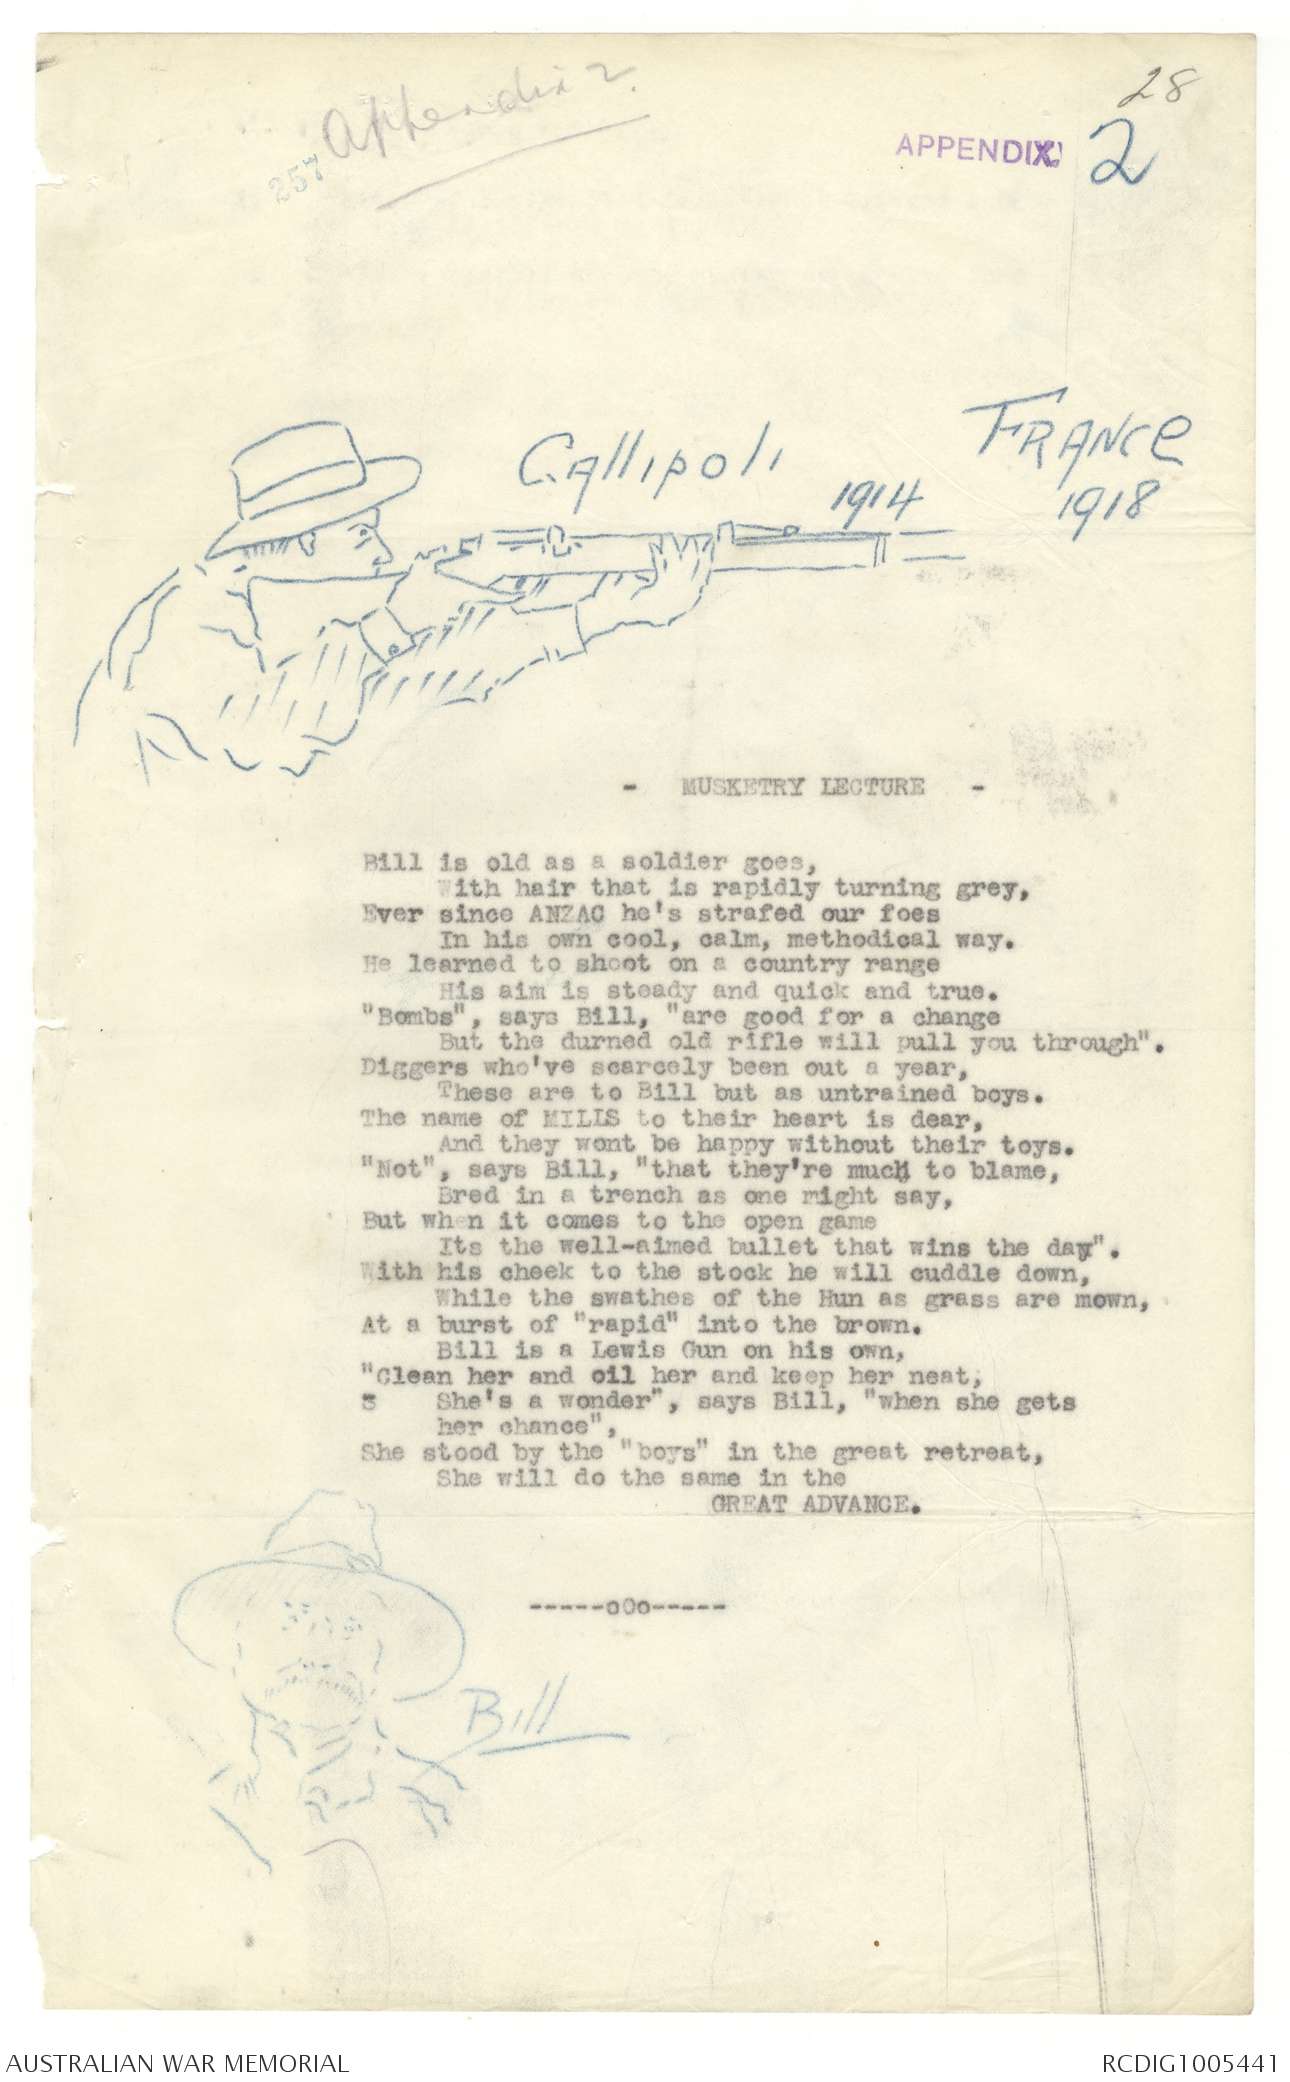 28
Appendix 2.
257
APPENDIX 2
Gallipoli 1914
FRANCE 1918
- MUSKETRY LECTURE -
Bill is old as a soldier goes,
With hair that is rapidly turning grey,
Ever since ANZAC he's strafed our foes
In his own cool, calm, methodical way.
He learned to shoot on a country range
His aim is steady and quick and true.
"Bombs", says Bill, "are good for a change
But the durned old rifle will pull you through".
Diggers who've scarcely been out a year,
These are to Bill but as untrained boys.
The name of MILLS to their heart is dear,
And they wont be happy without their toys.
"Not", says Bill, "that they're much to blame,
Bred in a trench as one might say,
But when it comes to the open game
Its the well-aimed bullet that wins the day".
With his cheek to the stock he will cuddle down,
While the swathes of the Hun as grass are mown,
At a burst of "rapid" into the brown.
Bill is a Lewis Gun on his own,
"Clean her and oil her and keep her neat,
She's a wonder", says Bill, "when she gets
her chance",
She stood by the "boys" in the great retreat,
She will do the same in the
GREAT ADVANCE.
-----oOo-----
Bill
AUSTRALIAN WAR MEMORIAL
RCDIG1005441